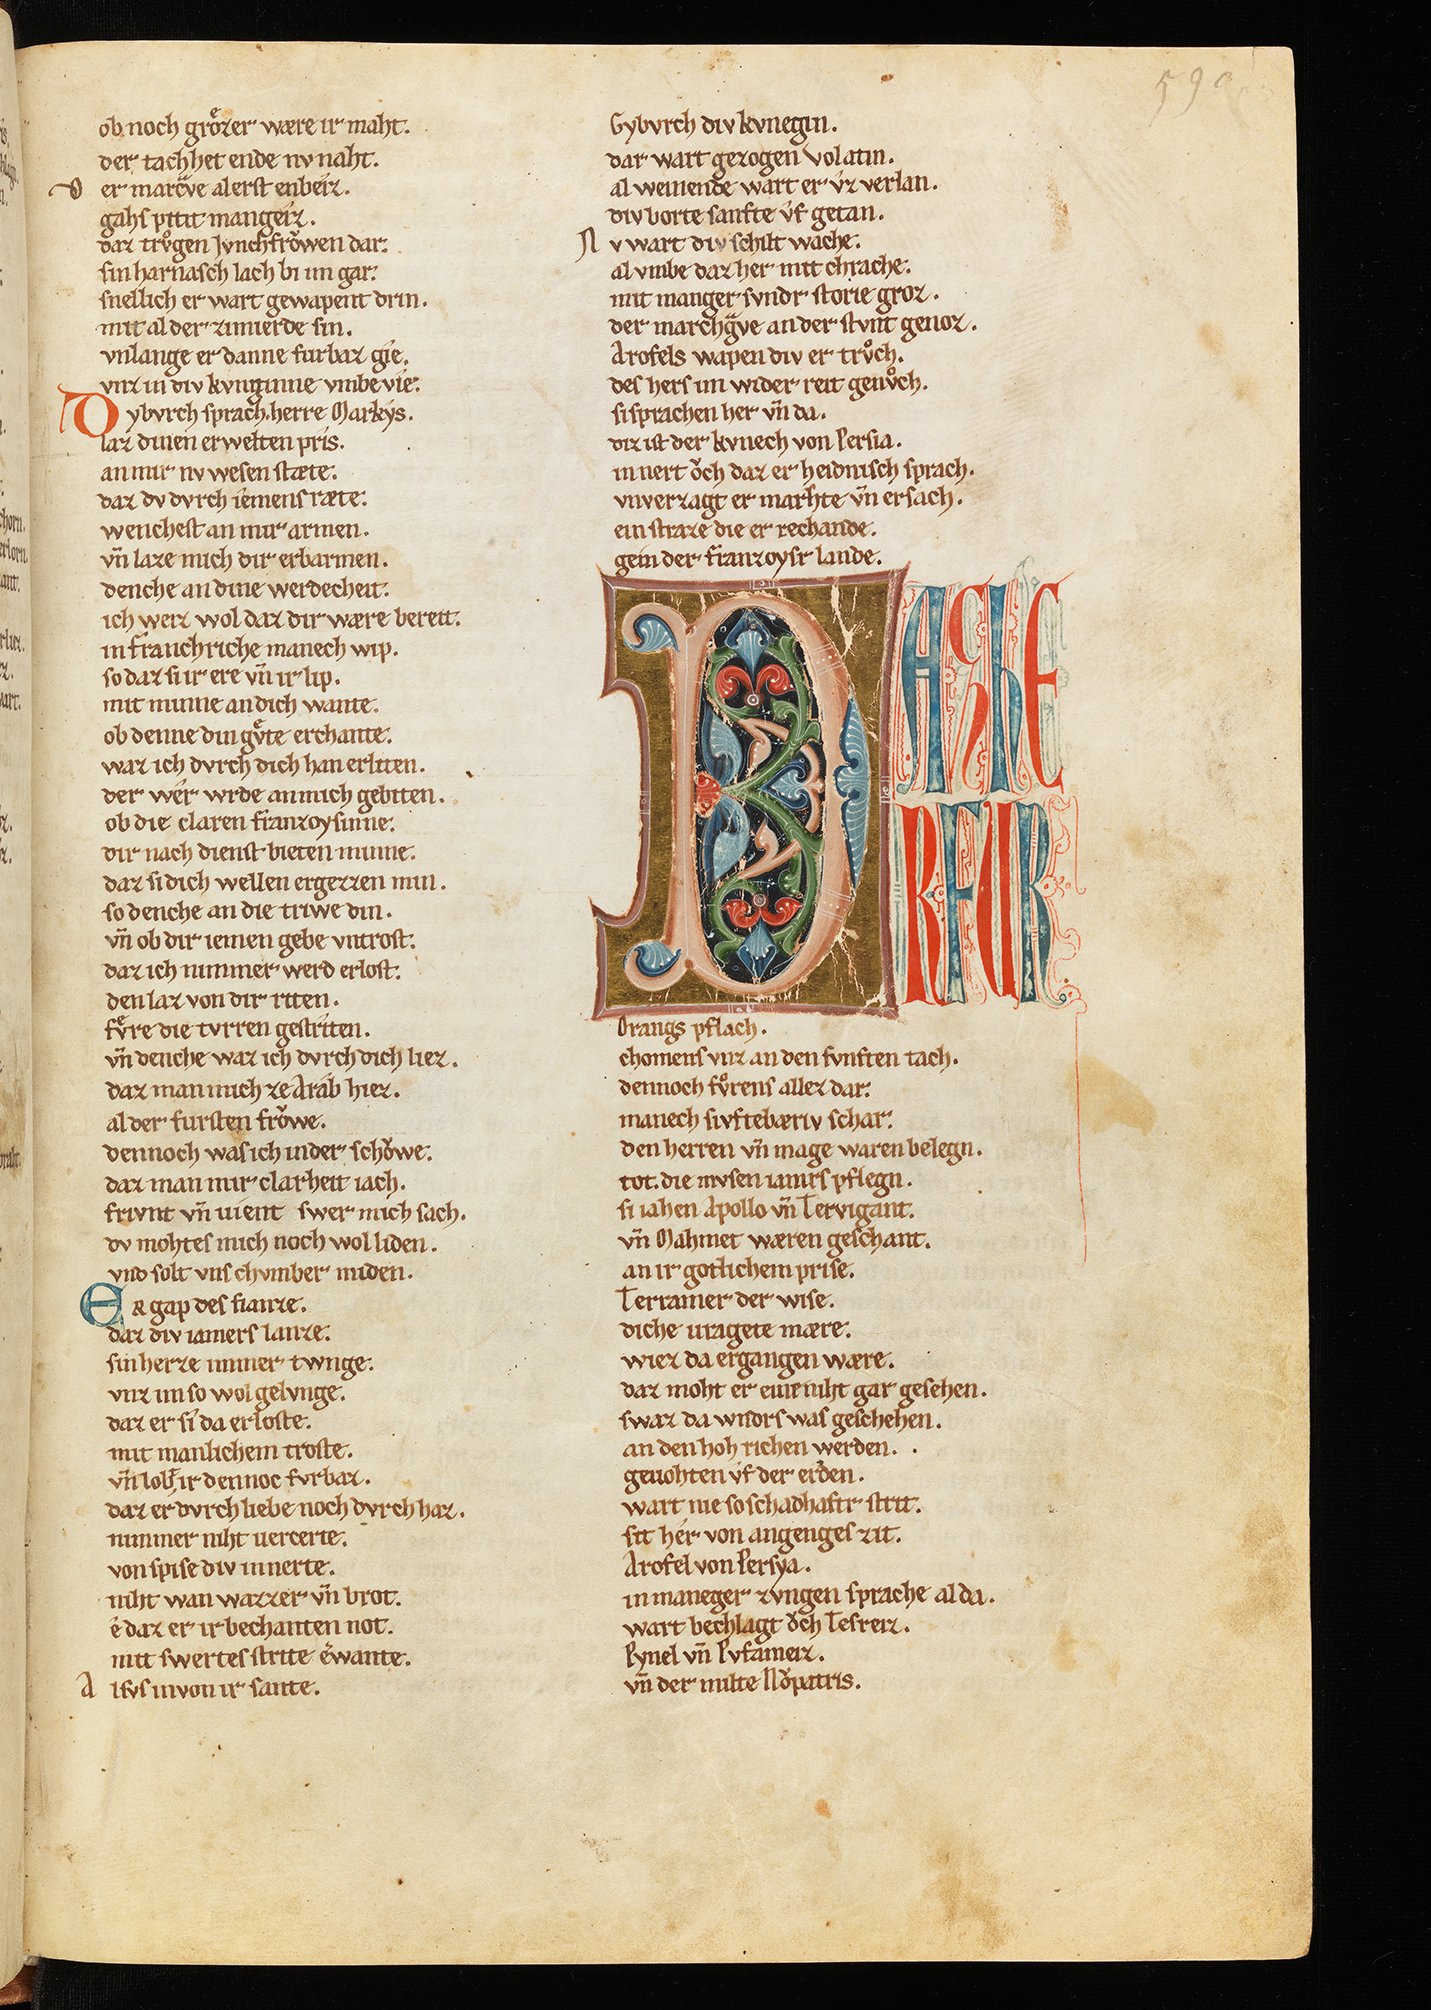 590
ob noch grozͤer wære ir maht.
der tach het ende nv naht.
Der marcͣve alerst enbeiz.
gahs pitit mangeiz.
daz trvͦgen Jvnchfroͮwen dar.
sin harnasch lach bi im gar.
snellich er wart gewapent drin.
mit al der zimierde sin.
vnlange er danne furbaz gie.
vnz in div kvnginne vmbevie.
Gybvrch sprach. herre Markys.
laz dinen erwelten pris.
an mir nv wesen stæte.
daz dv dvrch iemens ræte.
wenchest an mir armen.
vn̄ laze mich dir erbarmen.
denche an dine werdecheit.
ich weiz wol daz dir wære bereit.
in franchriche manech wip.
so daz si ir ere vn̄ ir lip.
mit minne an dich wante.
ob denne din gvͤte erchante.
waz ich dvrch dich han erliten.
der wer wrde an mich gebiten.
ob die claren franzoysinne.
dir nach dienst bieten minne.
daz si dich wellen ergezzen min.
so denche an die triwe din.
vn̄ ob dir iemen gebe vntrost.
daz ich nimmer werd erlost.
den laz von dir riten.
fvͤre die tvrren gestriten.
vn̄ denche waz ich dvrch dich liez.
daz man mich ze Arab hiez.
al der fursten froͮwe.
dennoch was ich in der schoͮwe.
daz man mir clarheit iach.
frivnt vn̄ vient swer mich sach.
dv mohtes mich noch wol liden.
vnd solt vns chvmber miden.
Er gap des fianze.
daz div iamers lanze.
sin herze immer twnge.
vnz im so wol gelvnge.
daz er si da erloste.
mit manlichem troste.
vn̄ lobt ir dennoc fvrbaz.
daz er dvrch liebe noch dvrch haz.
nimmer niht vercerte.
von spise div in nerte.
niht wan wazzer vn̄ brot.
e daz er ir bechanten not.
mit swertes strite erwante.
Alsvs in von ir sante.
Gybvrch div kvnegin.
dar wart gezogen volatin.
al weinende wart er vz verlan.
div borte sanfte vf getan.
Nv wart div schilt wache.
al vmbe daz her mit chrache.
mit manger svndr storie groz.
der marchgͣve an der stvnt genoz.
Arofels wapen div er trvͦch.
des hers im wider reit genvͦch.
si sprachen her vn̄ da.
diz ist der kvnech von Persia.
in nert oͮch daz er heidnisch sprach.
vnverzagt er marhte vn̄ ersach.
ein straze die er rechande.
gein der franzoysr lande.
DAZ HE
R FUR
Orangs pflach.
chomens vnz an den fvnften tach.
dennoch fvͦrens allez dar.
manech sivftebæriv schar.
den herren vn̄ mage waren belegn.
tot. die mvsen iamrs pflegn.
si iahen Apollo vn̄ Tervigant.
vn̄ Mahmet wæren geschant.
an ir gotlichem prise.
Terramer der wise.
diche vragete mære.
wiez da ergangen wære.
daz moht er eine niht gar gesehen.
swaz da wndrs was geschehen.
an den hoh richen werden.
gevohten vf der erden.
wart nie so schadhaftr strit.
sit her von angenges zit.
Arofel von Persya.
in maneger zvngen sprache al da.
wart bechlagt oͮch Tesreiz.
Pynel vn̄ Pvsameiz.
vn̄ der milte Noͮpatris.